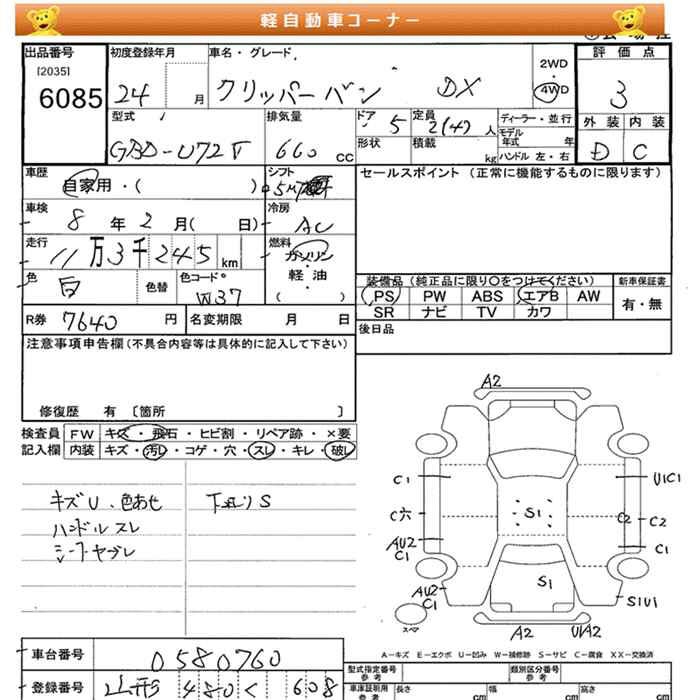 軽自動車コーナー
出品番号 初度登録年月 車名・グレード 評価点
[2035]
6085 24 月 クリッパーバン DX 2WD 4WD 3
型式 排気量 ドア 5 定員 2(4)人 ディーラー・並行 外装 内装
GBD-U72V 660 CC 形状 積載 kg モデル年式 年 D C
ハンドル 左・右
車歴 シフト セールスポイント (正常に機能するものに限ります)
自家用・( ) 5M
車検 冷房
8 年 2 月( 日) AC
走行 燃料
11万3千245 km ガソリン
色 色替 色コード 軽・油
白 W37 ( )
装備品(純正品に限り〇をつけてください) 新車保証書
PS PW ABS エアB AW 有・無
SR ナビ TV カワ
R券 7640 円 名変期限 月 日 後日品
注意事項申告欄(不具合内容等は具体的に記入して下さい)
修復歴 有 〔箇所 〕
検査員 FW キズ・飛石・ヒビ割・リペア跡・×要
記入欄 内装 キズ・汚レ・コゲ・穴・スレ・キレ・破レ
キズU、色あせ 下廻りS
ハンドルスレ
シートヤブレ
A2
C1 U1C1
C穴 S1 C2 C2
AU2 C1
C1
AU2 S1 S1U1
C1
スペア
A2 U1A2
A-キズ E-エクボ U-凹み W-補修跡 S-サビ C-腐食 XX-交換済
車台番号 0580760
型式指定番号 参考 類別区分番号 参考
登録番号 山形 480 く 608
車庫証明用 参考 長さ cm 幅 cm 高さ cm